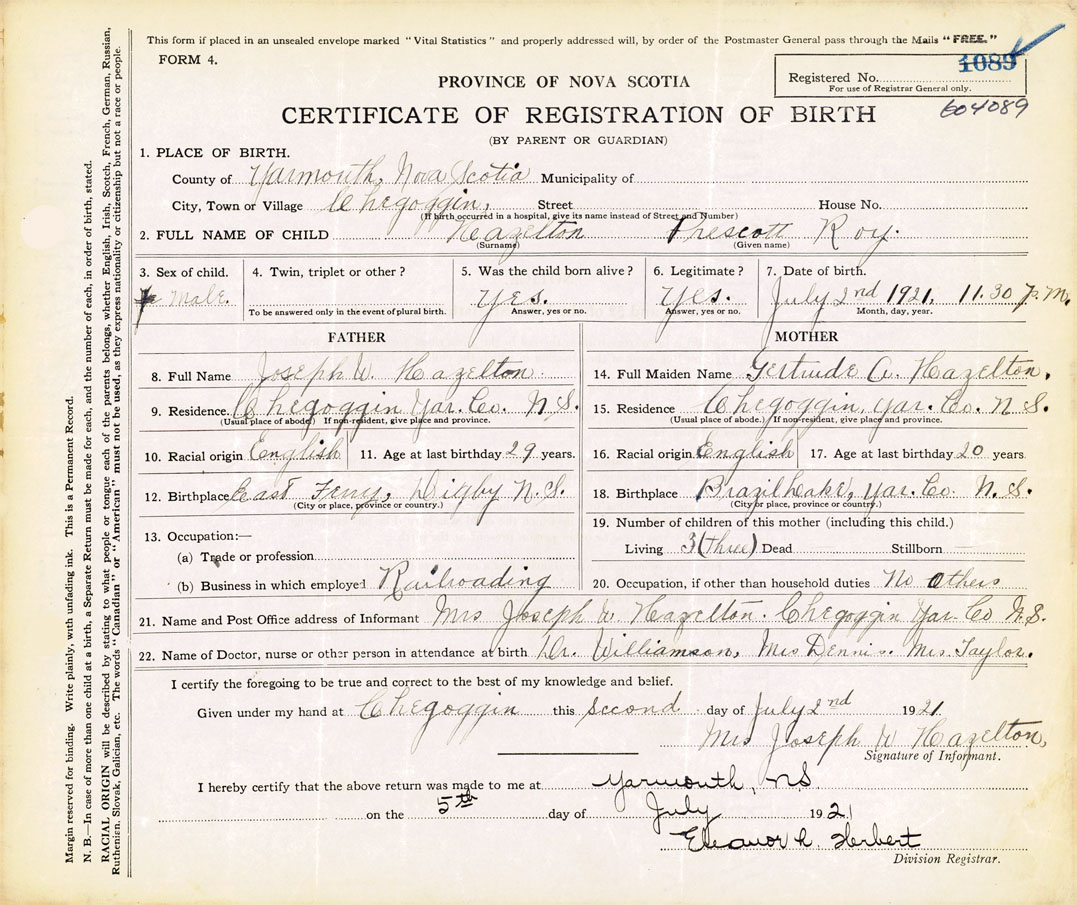 This form if placed in an unsealed envelope marked "Vital Statistics" and properly addressed will, by order of the Postmaster General pass through the Mails "FREE."
FORM 4.
1089
PROVINCE OF NOVA SCOTIA
Registered No.
For use of Registrar General only.
604089
CERTIFICATE OF REGISTRATION OF BIRTH
(BY PARENT OR GUARDIAN)
1. PLACE OF BIRTH.
County of Yarmouth, Nova Scotia Municipality of
City, Town or Village Chegoggin, Street House No.
(If birth occurred in a hospital, give its name instead of Street and Number)
2. FULL NAME OF CHILD Hazelton Prescott Roy.
(Surname) (Given name)
3. Sex of child. 4. Twin, triplet or other? 5. Was the child born alive? 6. Legitimate? 7. Date of birth.
Male. Yes. Yes. July 2nd 1921, 11.30 P.M.
To be answered only in the event of plural birth. Answer, yes or no. Answer, yes or no. Month, day, year.
FATHER
8. Full Name Joseph W. Hazelton.
9. Residence. Chegoggin Yar. Co. N.S.
(Usual place of abode.) If non-resident, give place and province.
10. Racial origin English 11. Age at last birthday 29 years.
12. Birthplace East Ferry, Digby N.S.
(City or place, province or country.)
13. Occupation:—
(a) Trade or profession
(b) Business in which employed Railroading
MOTHER
14. Full Maiden Name Gertrude A. Hazelton.
15. Residence Chegoggin, Yar. Co. N.S.
(Usual place of abode.) If non-resident, give place and province.
16. Racial origin English 17. Age at last birthday 20 years
18. Birthplace Brazil Lake, Yar. Co. N.S.
(City or place, province or country.)
19. Number of children of this mother (including this child.)
Living 3 (three) Dead Stillborn —
20. Occupation, if other than household duties No others
21. Name and Post Office address of Informant Mrs Joseph W Hazelton. Chegoggin Yar. Co N.S.
22. Name of Doctor, nurse or other person in attendance at birth Dr. Williamson, Mrs Dennis. Mrs. Taylor.
I certify the foregoing to be true and correct to the best of my knowledge and belief.
Given under my hand at Chegoggin this second day of July 2nd 1921
Mrs Joseph W Hazelton,
Signature of Informant.
I hereby certify that the above return was made to me at Yarmouth, NS
on the 5th day of July 1921
Eleanor L. Herbert
Division Registrar.
Margin reserved for binding. Write plainly, with unfading ink. This is a Permanent Record.
N. B.—In case of more than one child at a birth, a Separate Return must be made for each, and the number of each, in order of birth, stated.
RACIAL ORIGIN will be described by stating to what people or tongue each of the parents belongs, whether English, Irish, Scotch, French, German, Russian,
Ruthenian, Slovak, Galician, etc. The words "Canadian" or "American" must not be used, as they express nationality or citizenship but not a race or people.